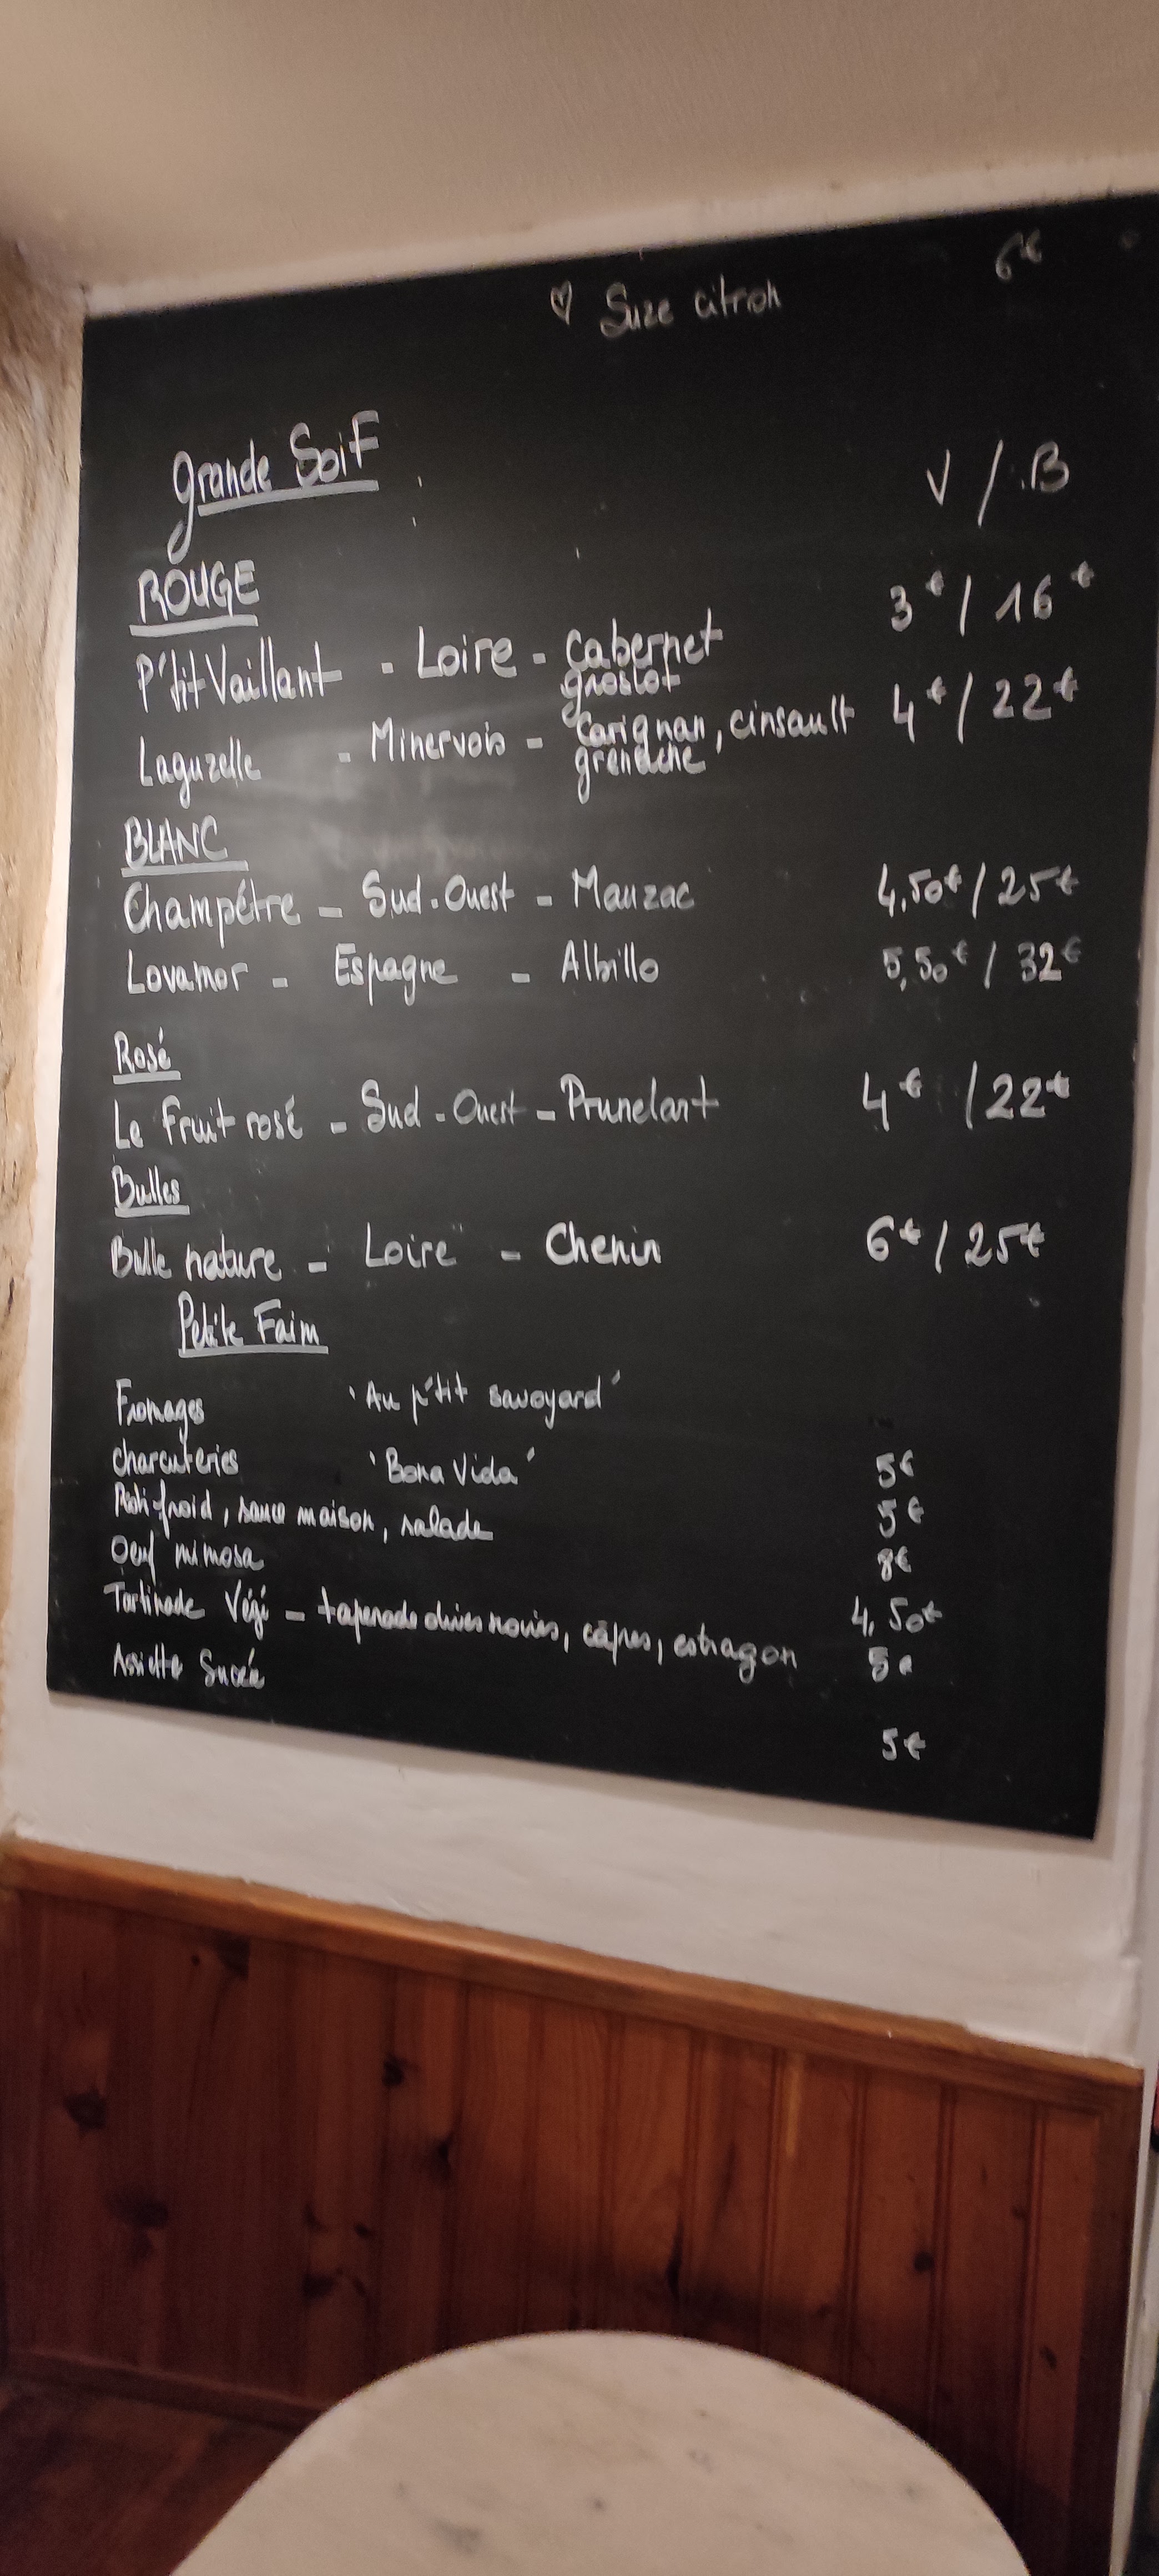 ♡ Suze citron 6€
Grande Soif V / B
ROUGE
P'tit Vaillant - Loire - Cabernet grolot 3€ / 16€
Laguzelle - Minervois - Carignan, cinsault grenache 4€ / 22€
BLANC
Champêtre - Sud-Ouest - Mauzac 4,50€ / 25€
Lovamor - Espagne - Albillo 5,50€ / 32€
Rosé
Le Fruit rosé - Sud-Ouest - Prunelart 4€ / 22€
Bulles
Bulle nature - Loire - Chenin 6€ / 25€
Petite Faim
Fromages 'Au p'tit savoyard' 5€
Charcuteries 'Bona Vida' 5€
Roti froid, sauce maison, salade 8€
Oeuf mimosa 4,50€
Tartinade Végé - tapenade olives noires, câpres, estragon 5€
Assiette Sucrée 5€